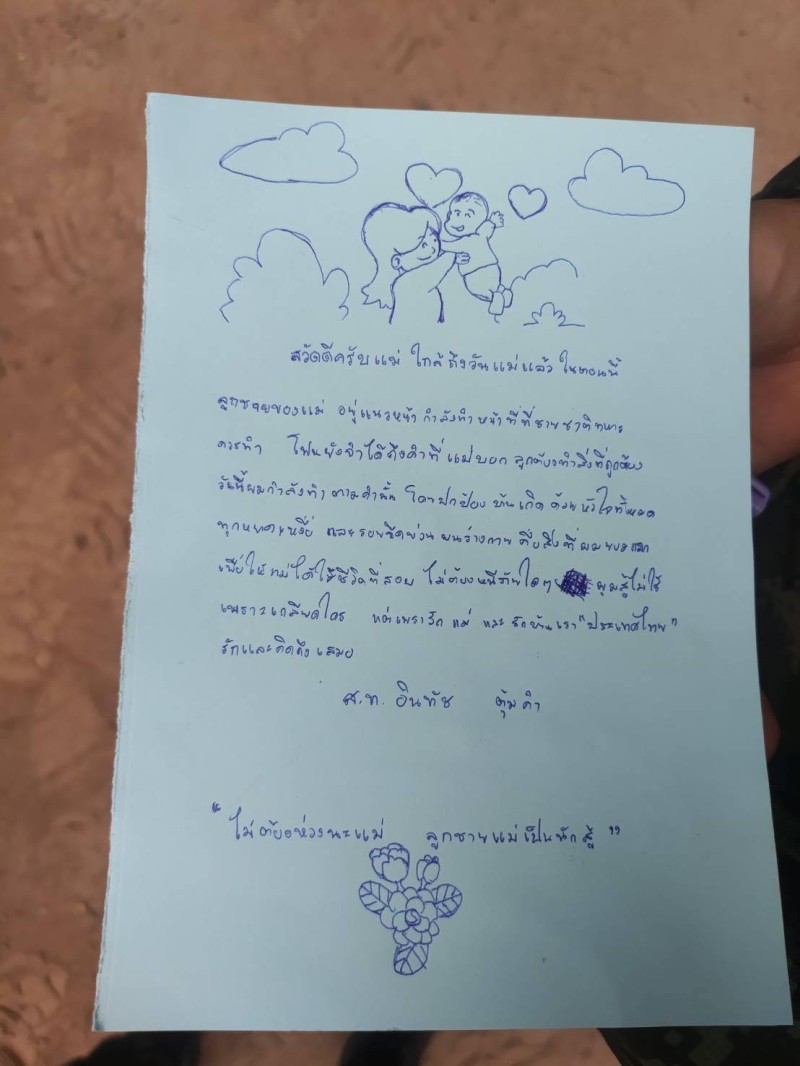 สวัดดีครับแม่ ใกล้ถึงวันแม่แล้ว ในตอนนี้
ลูกชายของแม่ อยู่แนวหน้า กำลังทำหน้าที่ที่ชายชาติทหาร
ควรทำ โฟนยังจำได้ถึงคำที่แม่บอก ลูกต้องทำสิ่งที่ถูกต้อง
วันนี้ผมกำลังทำตามคำนั้น โดยปกป้องบ้านเกิด ด้วยหัวใจทั้งหมด
ทุกหยดเหงื่อ และรอยขีดข่วน บนร่างกาย คือสิ่งที่ผมขอแลก
เพื่อให้แม่ได้ใช้ชีวิตที่สงบ ไม่ต้องหนีภัยใดๆ ผมสู้ไม่ใช่
เพราะเกลียดใคร แต่เพราะรัก แม่ และรักบ้านเรา "ประเทศไทย"
รักและคิดถึงเสมอ
ส.ท. อินทัช ตุ้มคำ
" ไม่ต้องห่วงนะแม่ ลูกชายแม่เป็นนักสู้ "